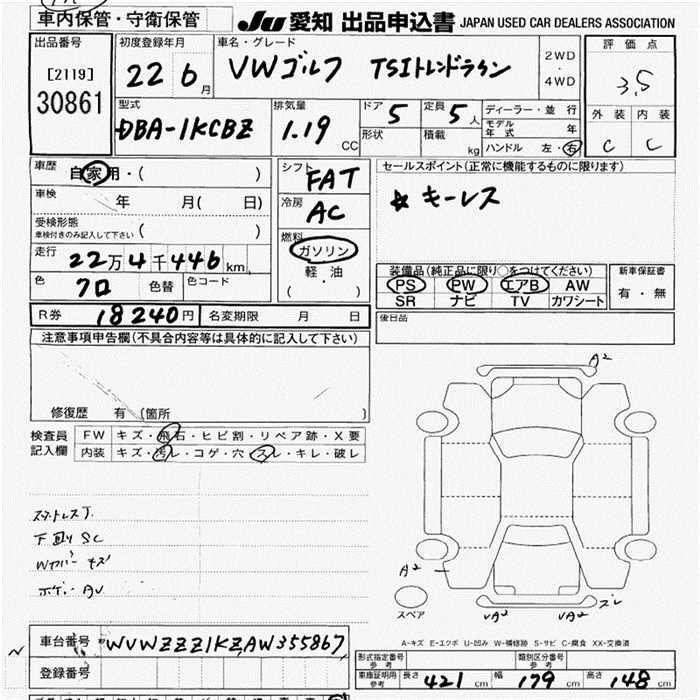 車内保管・守衛保管
JU 愛知 出品申込書 JAPAN USED CAR DEALERS ASSOCIATION
出品番号
[2119]
30861
初度登録年月
22 6月
車名・グレード
VWゴルフ TSIトレンドライン
2WD
・
4WD
評価点
3.5
外装 内装
C C
型式
DBA-1KCBZ
排気量
1.19 CC
ドア 5
定員 5人
形状
積載 kg
ディーラー・並行
モデル年式 年
ハンドル 左・右
車歴 自家用・( )
車検 年 月( 日)
受検形態
車検付きのみ記入して下さい ( )
走行 22万4千446km
色 クロ 色替 色コード
シフト FAT
冷房 AC
燃料
ガソリン
軽・油
( )
セールスポイント(正常に機能するものに限ります)
☆キーレス
装備品(純正品に限り○をつけてください)
PS PW エアB AW
SR ナビ TV カワシート
新車保証書
有・無
R券 18240円 名変期限 月 日
後日品
注意事項申告欄(不具合内容等は具体的に記入して下さい)
修復歴 有 (箇所 )
検査員記入欄
FW キズ・飛石・ヒビ割・リペア跡・X要
内装 キズ・汚レ・コゲ・穴・スレ・キレ・破レ
下廻りSC
Wカバーキズ
A2
A2
スペア
UA2 UA2 スレ
A-キズ E-エクボ U-凹み W-補修跡 S-サビ C-腐食 XX-交換済
車台番号 WVWZZZ1KZAW355867
登録番号
形式指定番号 参考
類別区分番号 参考
車庫証明用 参考 長さ 421cm 幅 179cm 高さ 148cm